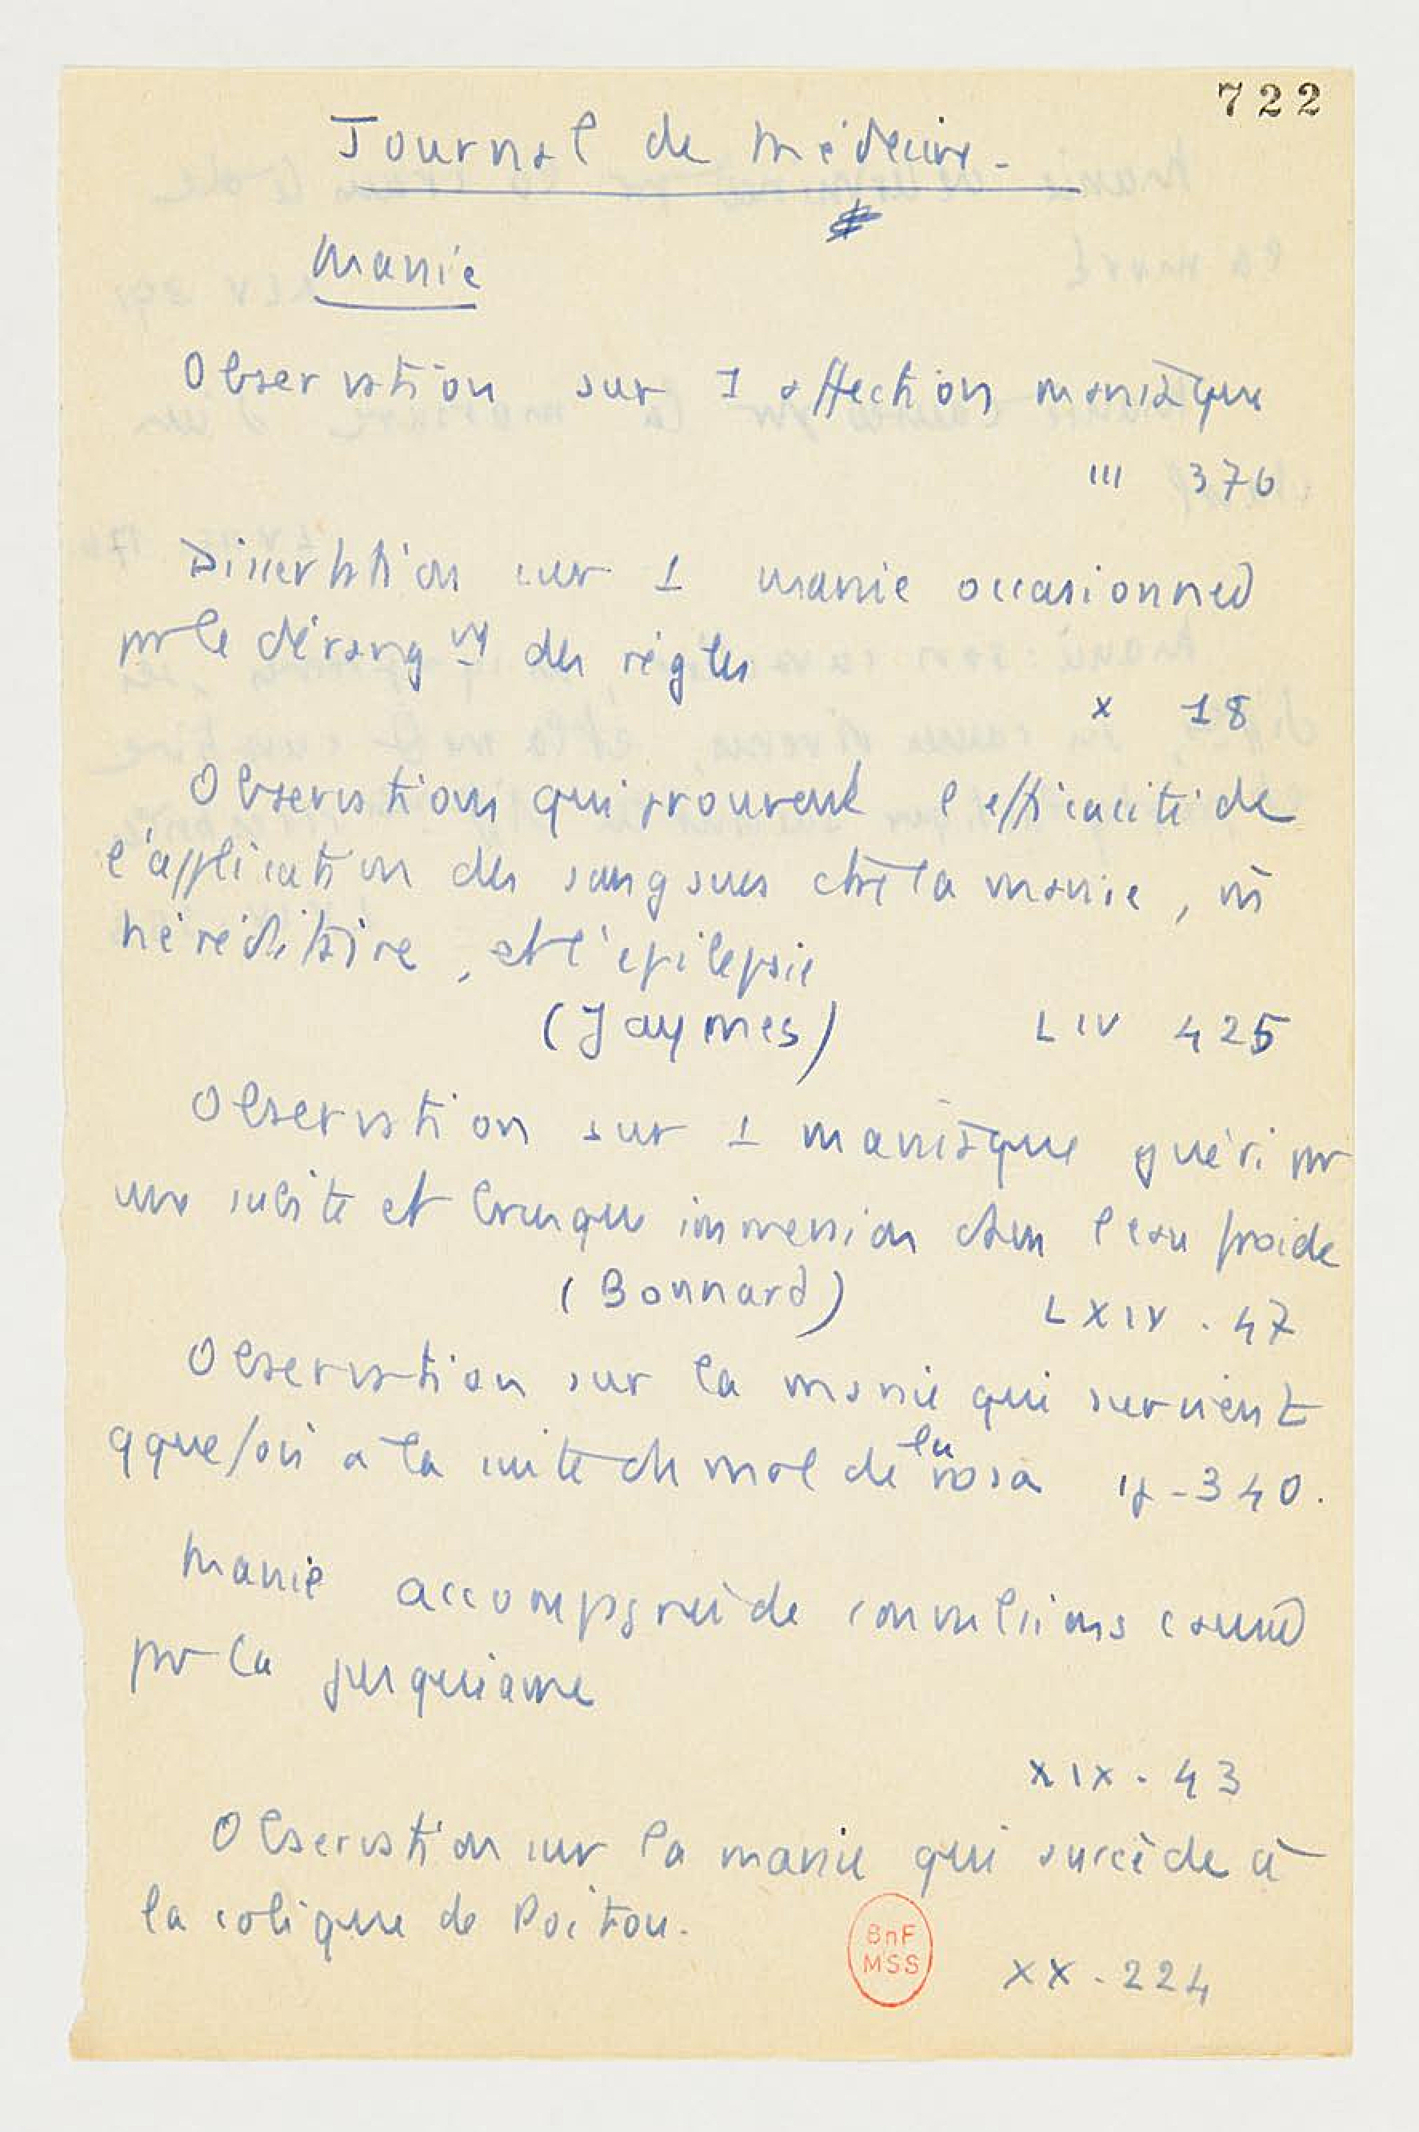 722
Journal de médecine.
Manie
Observation sur 1 affection maniaque
III 376
Dissertation sur 1 manie occasionnée
par le dérangt des règles
X 18
Observations qui prouvent l'efficacité de
l'application des sangsues ctre la manie, ns
héréditaire, et l'épilepsie
(Jaymes) LIV 425
Observation sur 1 maniaque guéri par
une subite et brusque immersion dans l'eau froide
(Bonnard) LXIV . 47
Observation sur la manie qui survient
qquefois a la suite du mal de la rosa IX - 340.
Manie accompagnée de convulsions causée
par la jusquiame
XIX . 43
Observation sur la manie qui succède à
la colique de Poitou.
XX . 224
BnF
MSS